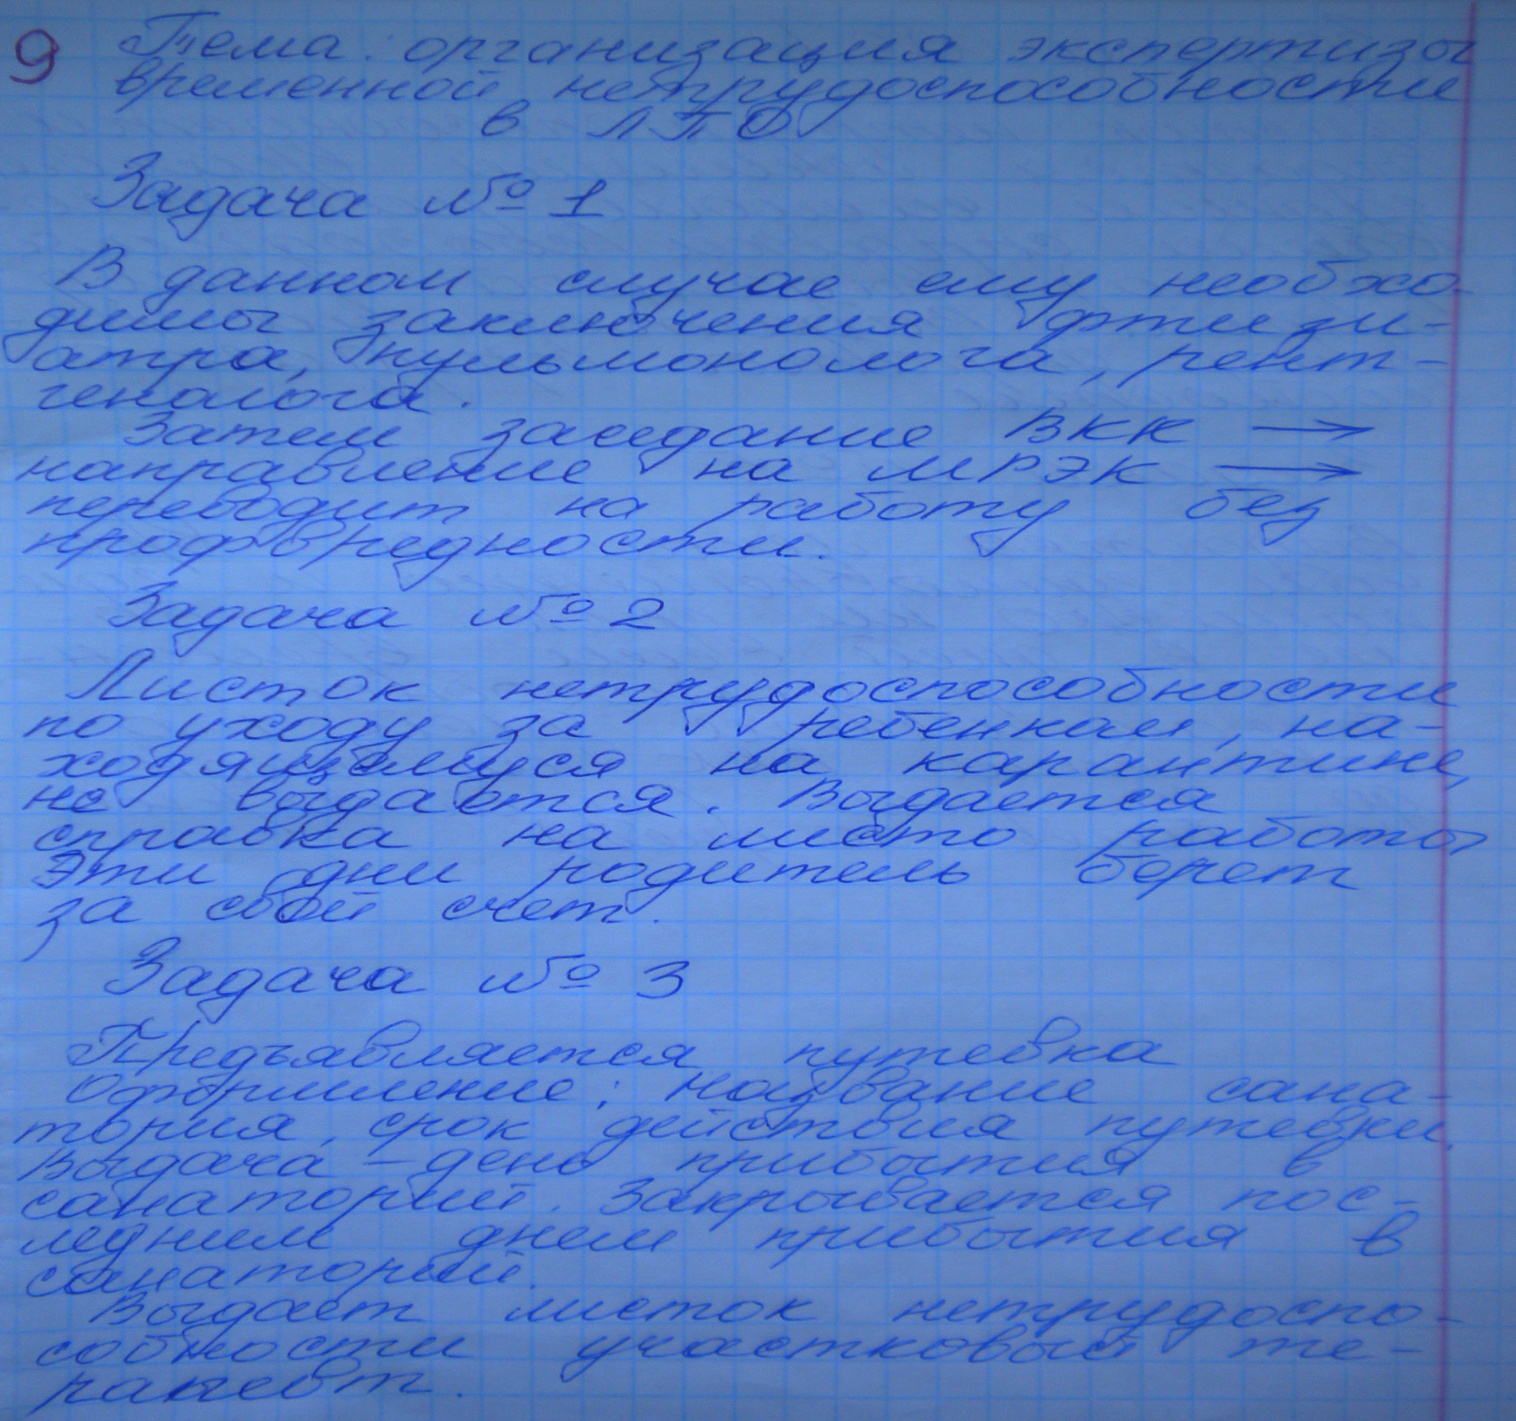 9 Тема: организация экспертизы
временной нетрудоспособности
в ЛПО
Задача № 1
В данном случае ему необхо-
димы заключения фтизи-
атра, пульмонолога, рент-
генолога.
Затем заседание ВКК →
направление на МРЭК →
переводит на работу без
профвредности.
Задача № 2
Листок нетрудоспособности
по уходу за ребенком, на-
ходящемуся на карантине,
не выдается. Выдается
справка на место работы
Эти дни родитель берет
за свой счет.
Задача № 3
Предъявляется путевка
Оформление: название сана-
тория, срок действия путевки.
Выдача – день прибытия в
санаторий. Закрывается пос-
ледним днем прибытия в
санаторий.
Выдает листок нетрудоспо-
собности участковый те-
рапевт.